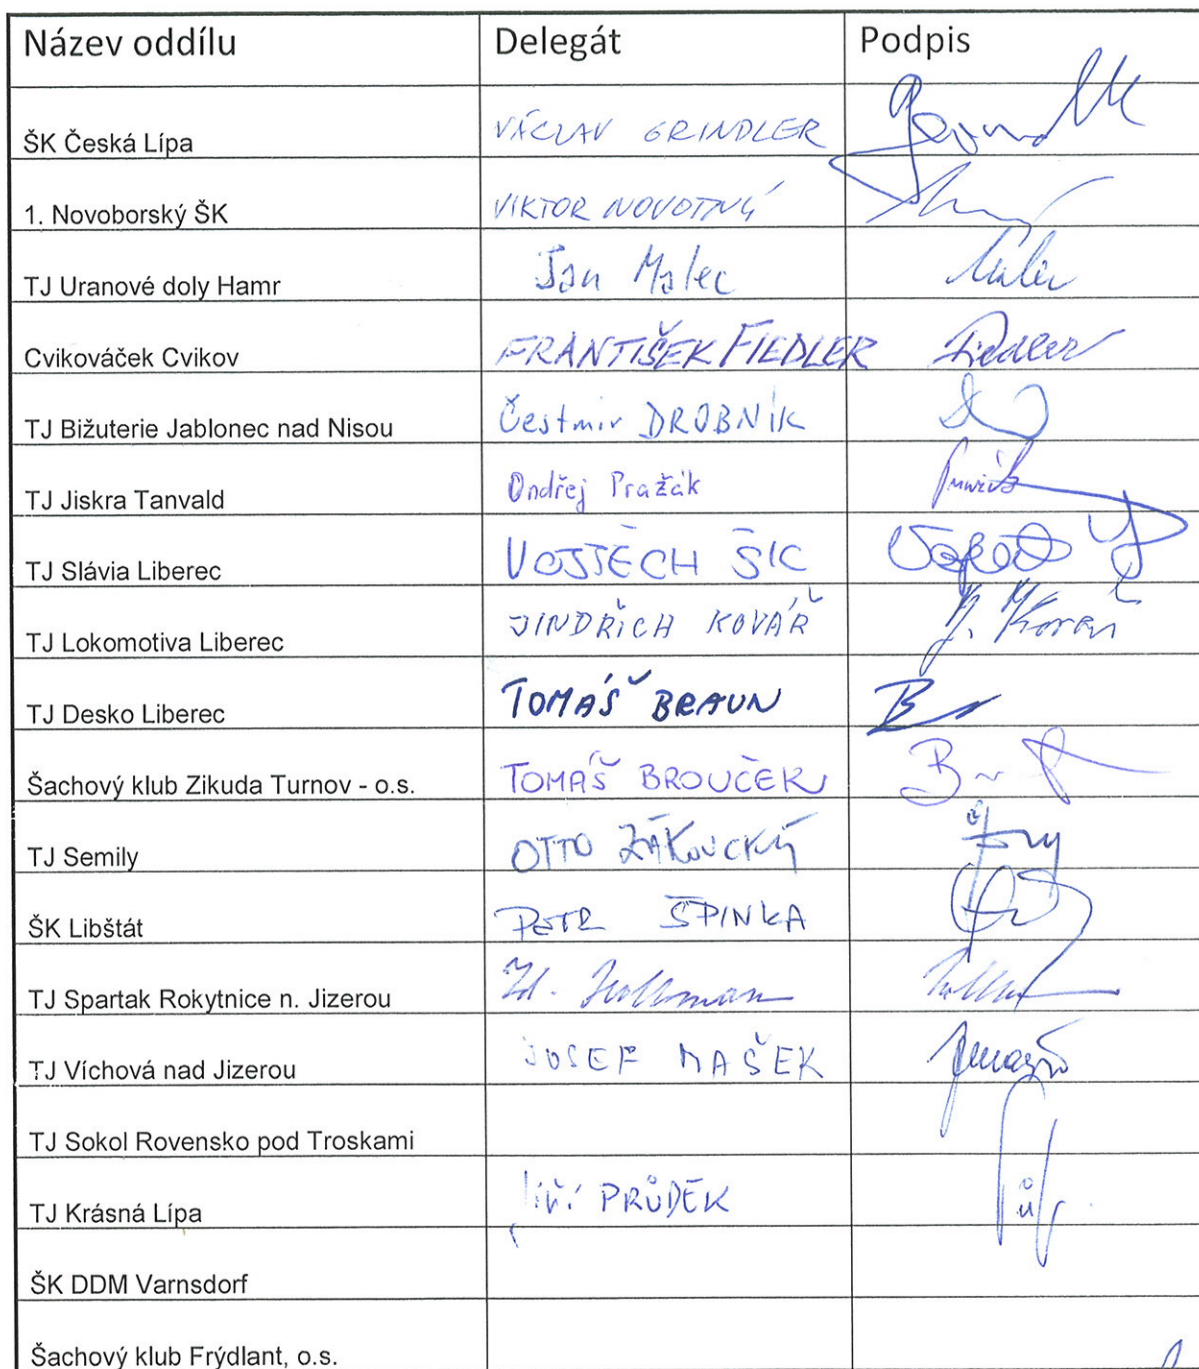 Název oddílu Delegát Podpis
ŠK Česká Lípa VÁCLAV GRINDLER
1. Novoborský ŠK VIKTOR NOVOTNÝ
TJ Uranové doly Hamr Jan Malec
Cvikováček Cvikov FRANTIŠEK FIEDLER Fiedler
TJ Bižuterie Jablonec nad Nisou Čestmír DROBNÍK
TJ Jiskra Tanvald Ondřej Pražák
TJ Slávia Liberec VOJTĚCH ŠÍC
TJ Lokomotiva Liberec JINDŘICH KOVÁŘ J. Kovář
TJ Desko Liberec TOMÁŠ BRAUN
Šachový klub Zikuda Turnov - o.s. TOMÁŠ BROUČEK
TJ Semily OTTO ŽÁKOUCKÝ
ŠK Libštát PETR ŠPINKA
TJ Spartak Rokytnice n. Jizerou Zd.
TJ Víchová nad Jizerou JOSEF MAŠEK
TJ Sokol Rovensko pod Troskami
TJ Krásná Lípa Jiří PRŮDEK
ŠK DDM Varnsdorf
Šachový klub Frýdlant, o.s.